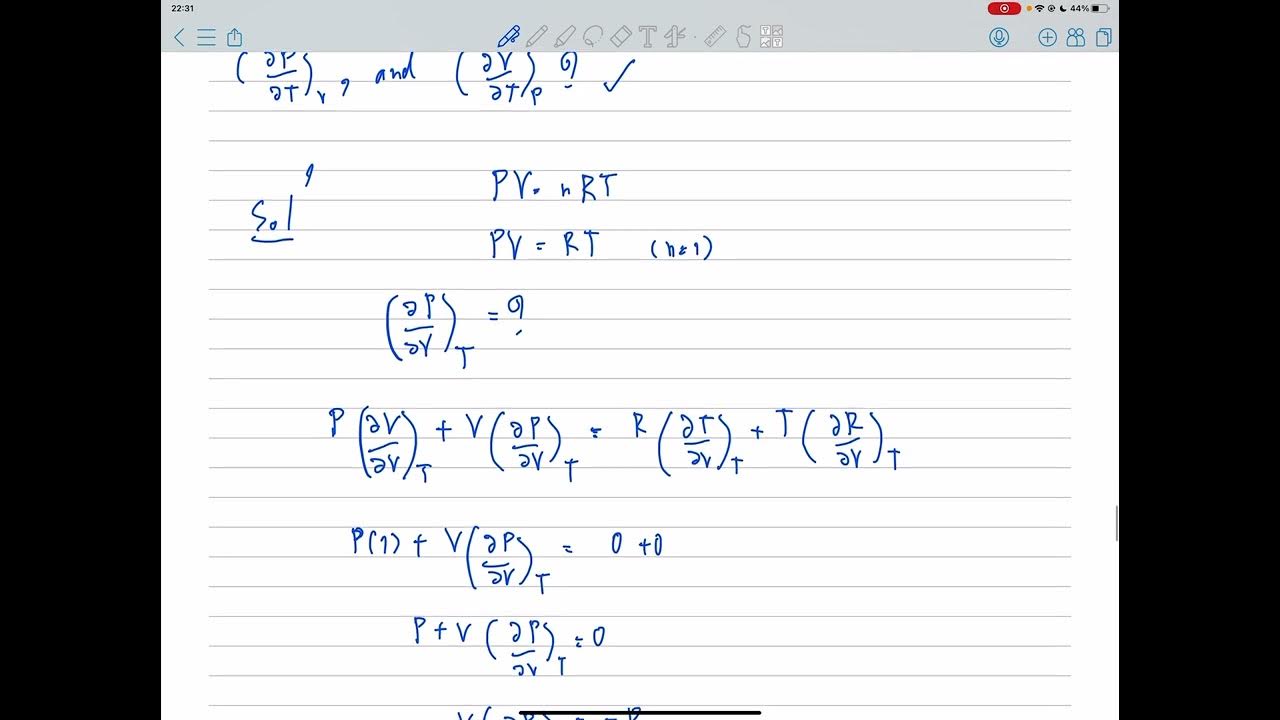 22:31
44%
(∂P/∂T)_V, and (∂V/∂T)_P ? ✓
Sol'
PV = nRT
PV = RT (n=1)
(∂P/∂V)_T = ?
P(∂V/∂V)_T + V(∂P/∂V)_T = R(∂T/∂V)_T + T(∂R/∂V)_T
P(1) + V(∂P/∂V)_T = 0 + 0
P + V(∂P/∂V)_T = 0